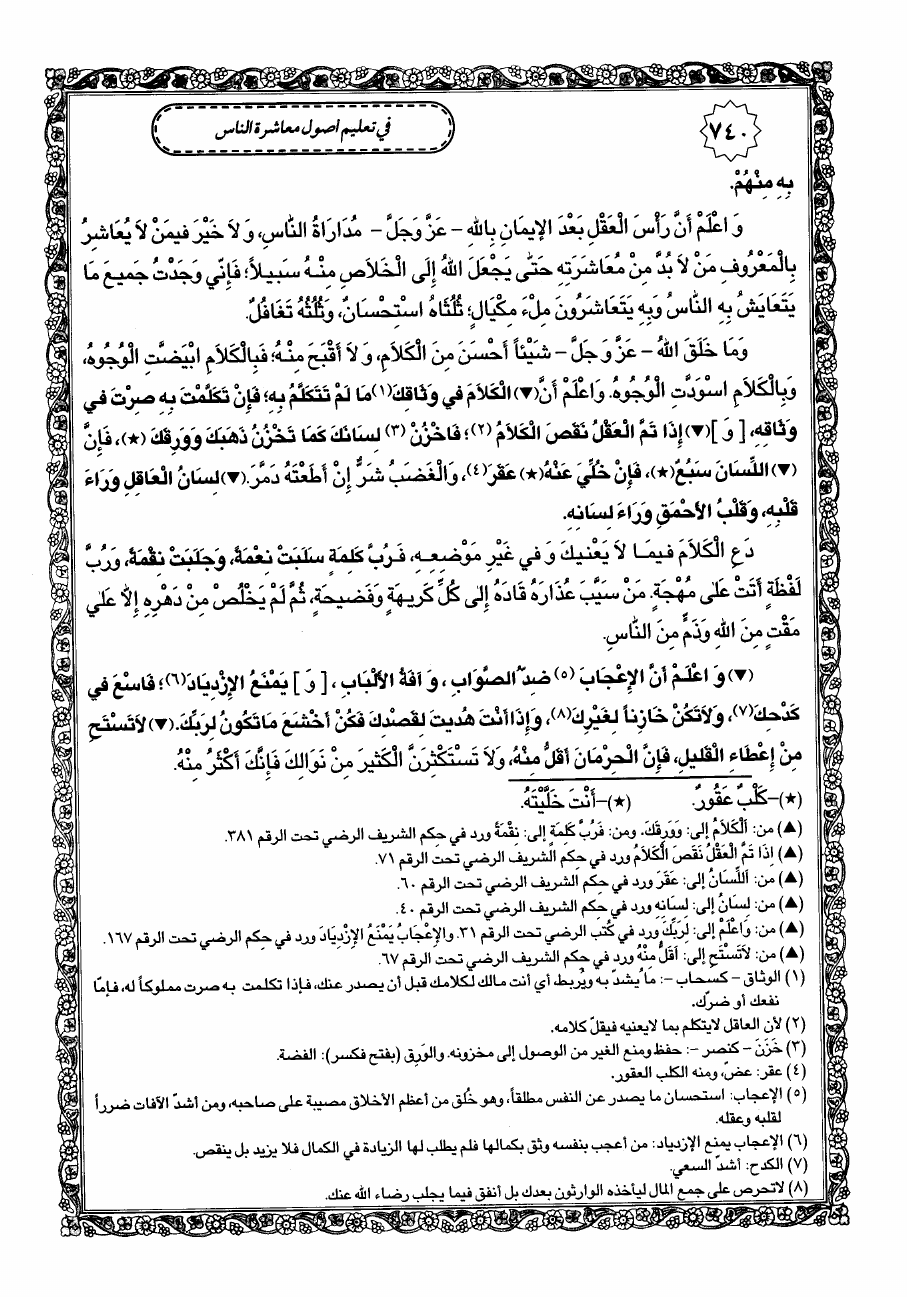 ٧٤٠
في تعليم اصول معاشرة الناس
بِهِ مِنْهُمْ.
وَ اعْلَمْ أَنَّ رَأْسَ الْعَقْلِ بَعْدَ الإيمَانِ بِاللهِ – عَزَّ وَجَلَّ – مُدَارَاةُ النَّاسِ، وَ لاَ خَيْرَ فيمَنْ لاَ يُعَاشِرُ
بِالْمَعْرُوفِ مَنْ لاَ بُدَّ مِنْ مُعَاشَرَتِهِ حَتّٰى يَجْعَلَ اللهُ إِلَى الْخَلاَصِ مِنْهُ سَبيلاً؛ فَإِنّي وَجَدْتُ جَميعَ مَا
يَتَعَايَشُ بِهِ النَّاسُ وَبِهِ يَتَعَاشَرُونَ مِلْءَ مِكْيَالٍ؛ ثُلُثَاهُ اسْتِحْسَانٌ، وَثُلُثُهُ تَغَافُلٌ.
وَمَا خَلَقَ اللهُ – عَزَّ وَ جَلَّ – شَيْئاً أَحْسَنَ مِنَ الْكَلاَمِ، وَ لاَ أَقْبَحَ مِنْهُ؛ فَبِالْكَلاَمِ ابْيَضَّتِ الْوُجُوهُ،
وَبِالْكَلاَمِ اسْوَدَّتِ الْوُجُوهُ. وَاعْلَمْ أَنَّ (▼) الْكَلاَمَ في وَثَاقِكَ (١) مَا لَمْ تَتَكَلَّمْ بِهِ؛ فَإِنْ تَكَلَّمْتَ بِهِ صِرْتَ في
وَثَاقِهِ، [ وَ ] (▼) إِذَا تَمَّ الْعَقْلُ نَقَصَ الْكَلاَمُ (٢)؛ فَاخْزُنْ (٣) لِسَانَكَ كَمَا تَخْزُنُ ذَهَبَكَ وَوَرِقَكَ (★)، فَإِنَّ
(▼) اللِّسَانَ سَبُعٌ (★)، فَإِنْ خُلِّيَ عَنْهُ (★) عَقَرَ (٤)، وَالْغَضَبُ شَرٌّ إِنْ أَطَعْتَهُ دَمَّرَ. (▼) لِسَانُ الْعَاقِلِ وَرَاءَ
قَلْبِهِ، وَقَلْبُ الأَحْمَقِ وَرَاءَ لِسَانِهِ.
دَعِ الْكَلاَمَ فيمَا لاَ يَعْنيكَ وَ في غَيْرِ مَوْضِعِهِ، فَرُبَّ كَلِمَةٍ سَلَبَتْ نِعْمَةً، وَجَلَبَتْ نِقْمَةً، وَرُبَّ
لَفْظَةٍ أَتَتْ عَلى مُهْجَةٍ. مَنْ سَيَّبَ عُذَارَهُ قَادَهُ إِلى كُلِّ كَريهَةٍ وَفَضيحَةٍ، ثُمَّ لَمْ يَخْلُصْ مِنْ دَهْرِهِ إِلاَّ عَلى
مَقْتٍ مِنَ اللهِ وَذَمٍّ مِنَ النَّاسِ.
(▼) وَ اعْلَمْ أَنَّ الإِعْجَابَ (٥) ضِدُّ الصَّوَابِ، وَ آفَةُ الأَلْبَابِ، [ وَ ] يَمْنَعُ الإِزْدِيَادَ (٦)؛ فَاسْعَ في
كَدْحِكَ (٧)، وَلاَتَكُنْ خَازِناً لِغَيْرِكَ (٨)، وَإِذَا أَنْتَ هُديتَ لِقَصْدِكَ فَكُنْ أَخْشَعَ مَا تَكُونُ لِرَبِّكَ. (▼) لاَتَسْتَحِ
مِنْ إِعْطَاءِ الْقَليلِ، فَإِنَّ الْحِرْمَانَ أَقَلُّ مِنْهُ، وَلاَ تَسْتَكْثِرَنَّ الْكَثيرَ مِنْ نَوَالِكَ فَإِنَّكَ أَكْثَرُ مِنْهُ.
(★)–كَلْبٌ عَقُورٌ. (★)–أَنْتَ خَلَّيْتَهُ.
(▲) من: اَلْكَلاَمُ إلى: وَوَرِقَكَ، ومن: فَرُبَّ كَلِمَةٍ إلى: نِقْمَةً ورد في حكم الشريف الرضي تحت الرقم ٣٨١.
(▲) إِذَا تَمَّ الْعَقْلُ نَقَصَ الْكَلاَمُ ورد في حكم الشريف الرضي تحت الرقم ٧١.
(▲) من: اَللِّسَانُ إلى: عَقَرَ ورد في حِكم الشريف الرضي تحت الرقم ٦٠.
(▲) من: لِسَانُ إلى: لِسَانِهِ ورد في حِكم الشريف الرضي تحت الرقم ٤٠.
(▲) من: وَاعْلَمْ إلى: لِرَبِّكَ ورد في كُتب الرضي تحت الرقم ٣١. والإِعْجَابُ يَمْنَعُ الإِزْدِيَادَ ورد في حِكم الرضي تحت الرقم ١٦٧.
(▲) من: لاَتَسْتَحِ إلى: أَقَلُّ مِنْهُ ورد في حكم الشريف الرضي تحت الرقم ٦٧.
(١) الوثاق – كسحاب –: مَا يُشدّ به ويُربط، أي أنت مالك لكلامك قبل أن يصدر عنك، فإذا تكلمت به صرت مملوكاً له، فإمّا
نفعك أو ضرّك.
(٢) لأن العاقل لايتكلم بما لايعنيه فيقلّ كلامه.
(٣) خَزَنَ – كنصر –: حفظ ومنع الغير من الوصول إلى مخزونه. والوَرِق (بفتح فكسر): الفضة.
(٤) عقر: عضّ، ومنه الكلب العقور.
(٥) الإعجاب: استحسان ما يصدر عن النفس مطلقاً، وهو خُلق من أعظم الأخلاق مصيبة على صاحبه، ومن أشدّ الآفات ضرراً
لقلبه وعقله.
(٦) الإعجاب يمنع الإزدياد: من أعجب بنفسه وثق بكمالها فلم يطلب لها الزيادة في الكمال فلا يزيد بل ينقص.
(٧) الكدح: أشدّ السعي.
(٨) لاتحرص على جمع المال ليأخذه الوارثون بعدك بل أنفق فيما يجلب رضاء الله عنك.